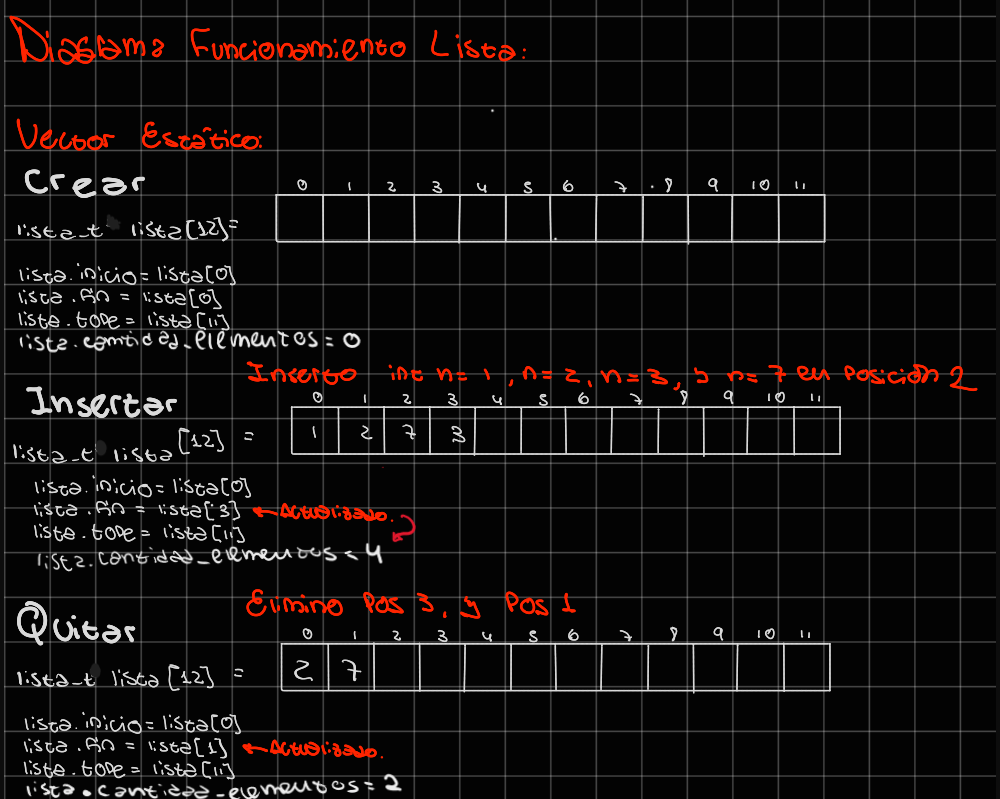 Diagrama Funcionamiento Lista:
Vector Estático:
Crear
0 1 2 3 4 5 6 7 8 9 10 11
lista_t lista[12]=
lista.inicio = lista[0]
lista.fin = lista[0]
lista.tope = lista[11]
lista.cantidad_elementos = 0
Inserto int n = 1, n = 2, n = 3, y n = 7 en posición 2
Insertar
0 1 2 3 4 5 6 7 8 9 10 11
lista_t lista[12] = 1 2 7 3
lista.inicio = lista[0]
lista.fin = lista[3] ← Actualizado.
lista.tope = lista[11]
lista.cantidad_elementos = 4
Elimino Pos 3, y Pos 1
Quitar
0 1 2 3 4 5 6 7 8 9 10 11
lista_t lista[12] = 2 7
lista.inicio = lista[0]
lista.fin = lista[1] ← Actualizado.
lista.tope = lista[11]
lista.cantidad_elementos = 2